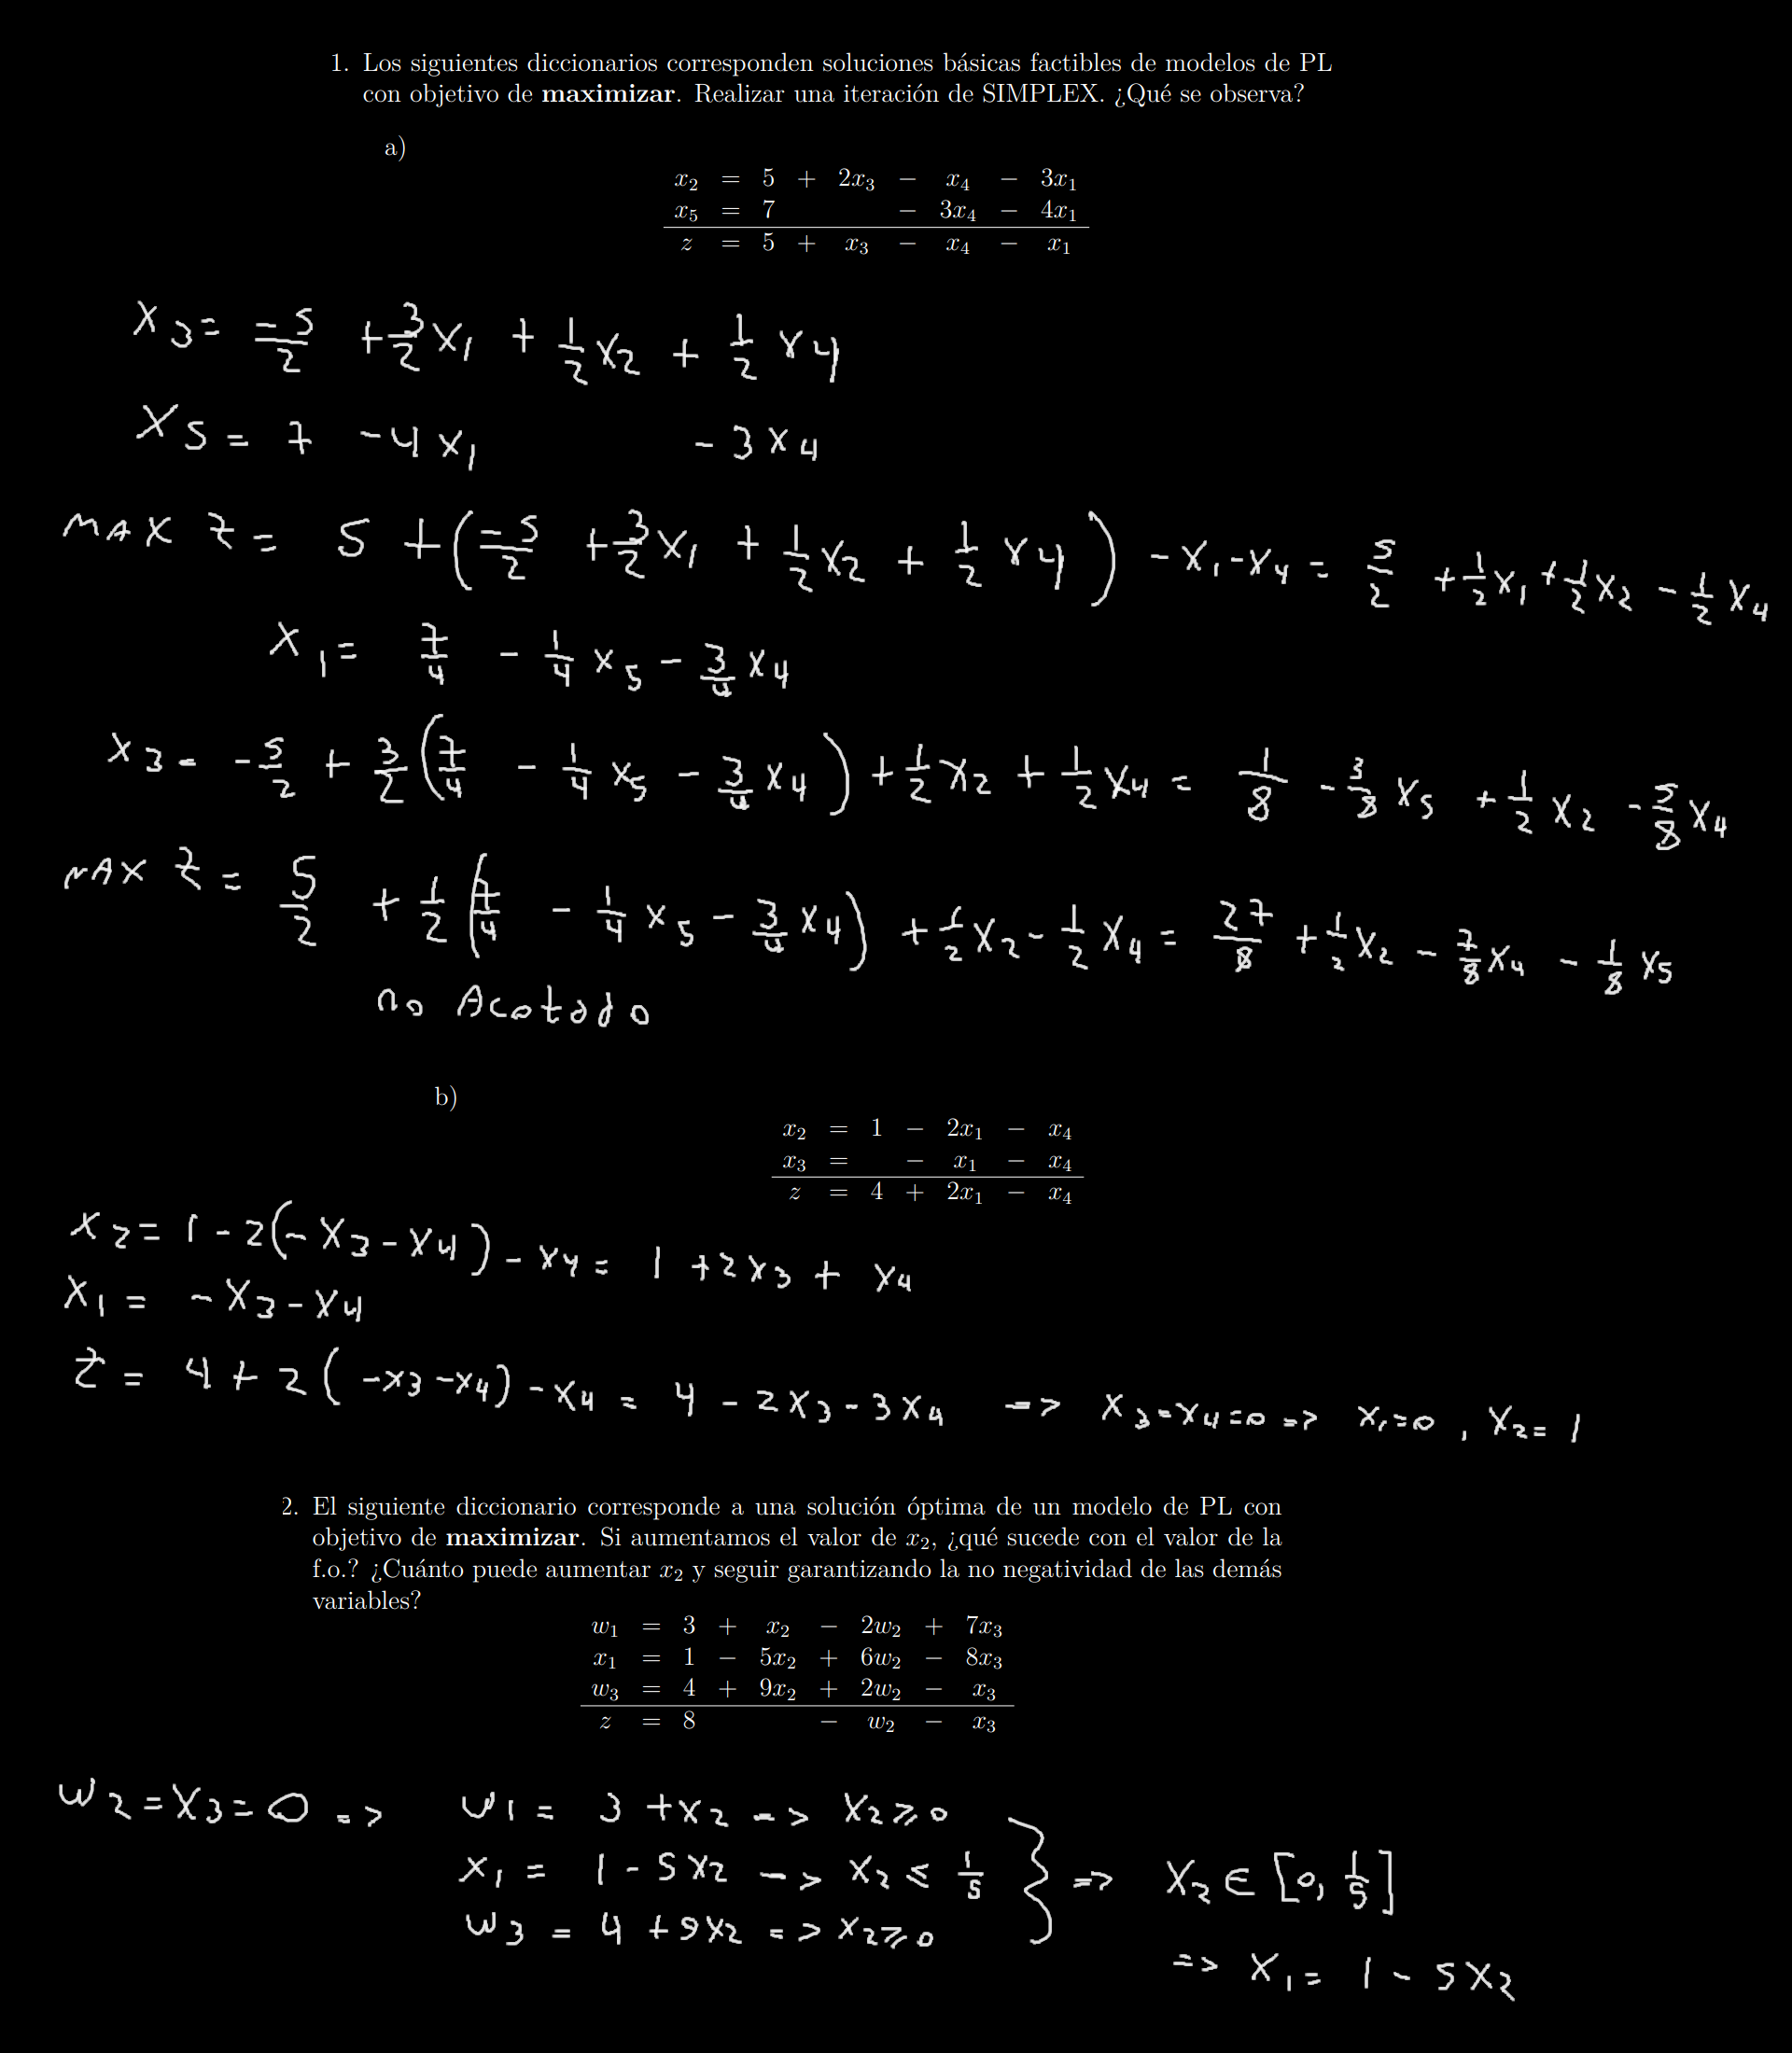 1. Los siguientes diccionarios corresponden soluciones básicas factibles de modelos de PL
con objetivo de maximizar. Realizar una iteración de SIMPLEX. ¿Qué se observa?
a)
x₂ = 5 + 2x₃ − x₄ − 3x₁
x₅ = 7 − 3x₄ − 4x₁
z = 5 + x₃ − x₄ − x₁
X3 = -5/2 + 3/2 X1 + 1/2 X2 + 1/2 X4
X5 = 7 - 4X1 - 3X4
MAX Z = 5 + (-5/2 + 3/2 X1 + 1/2 X2 + 1/2 X4) - X1 - X4 = 5/2 + 1/2 X1 + 1/2 X2 - 1/2 X4
X1 = 7/4 - 1/4 X5 - 3/4 X4
X3 = -5/2 + 3/2 (7/4 - 1/4 X5 - 3/4 X4) + 1/2 X2 + 1/2 X4 = 1/8 - 3/8 X5 + 1/2 X2 - 5/8 X4
MAX Z = 5/2 + 1/2 (7/4 - 1/4 X5 - 3/4 X4) + 1/2 X2 - 1/2 X4 = 27/8 + 1/2 X2 - 7/8 X4 - 1/8 X5
no Acotado
b)
x₂ = 1 − 2x₁ − x₄
x₃ = − x₁ − x₄
z = 4 + 2x₁ − x₄
X2 = 1 - 2(-X3 - X4) - X4 = 1 + 2X3 + X4
X1 = -X3 - X4
Z = 4 + 2(-X3 - X4) - X4 = 4 - 2X3 - 3X4 => X3 = X4 = 0 => X1 = 0, X2 = 1
2. El siguiente diccionario corresponde a una solución óptima de un modelo de PL con
objetivo de maximizar. Si aumentamos el valor de x₂, ¿qué sucede con el valor de la
f.o.? ¿Cuánto puede aumentar x₂ y seguir garantizando la no negatividad de las demás
variables?
w₁ = 3 + x₂ − 2w₂ + 7x₃
x₁ = 1 − 5x₂ + 6w₂ − 8x₃
w₃ = 4 + 9x₂ + 2w₂ − x₃
z = 8 − w₂ − x₃
W2 = X3 = 0 => W1 = 3 + X2 => X2 ≥ 0
X1 = 1 - 5X2 => X2 ≤ 1/5 } => X2 ∈ [0, 1/5]
W3 = 4 + 9X2 => X2 ≥ 0
=> X1 = 1 - 5X2